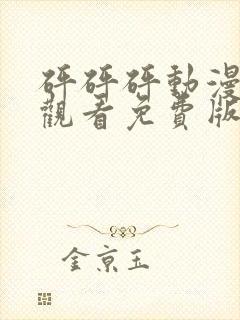 砰砰砰動漫
觀看免費版
金京玉